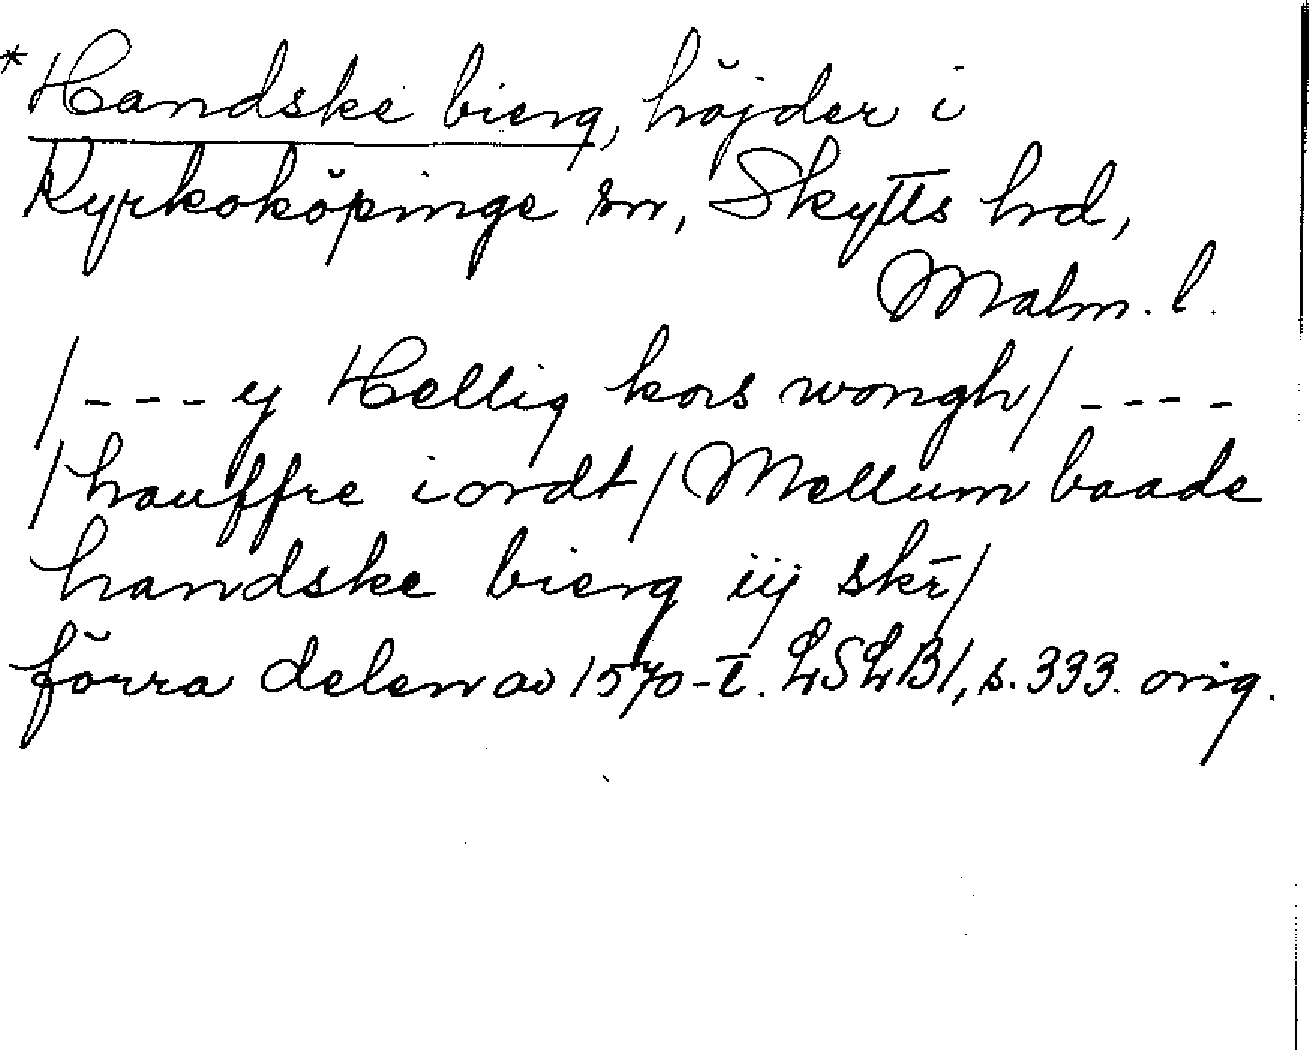 *Handske bierg, höjder i
Kyrkoköpinge sn, Skytts hd,
Malm. l.
/ - - - ij Hellig kors wongh / - - - -
/ hauffre iordt / Mellum baade
handske bierg iij skr̄ /
förra delen av 1570-t. LSLB1, s. 333. orig.